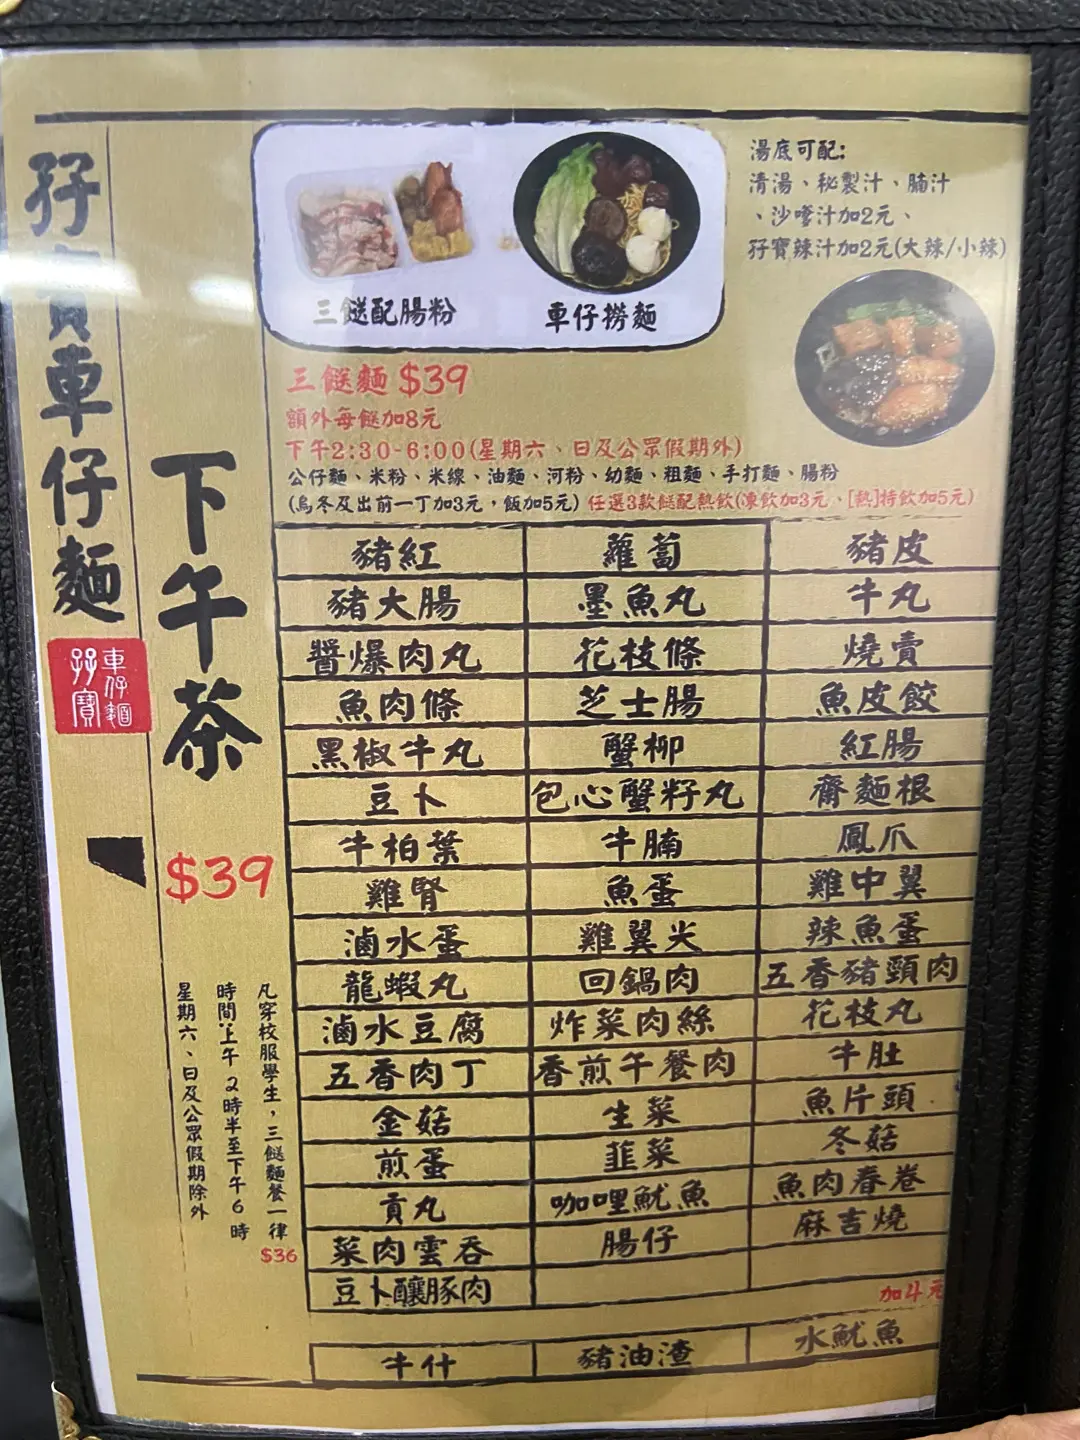 孖寶車仔麵
車仔麵
孖寶
下午茶
$39
凡穿校服學生，三餸麵餐一律
$36
時間:上午 2時半至下午6時
星期六、日及公眾假期除外
三餸配腸粉
車仔撈麵
湯底可配:
清湯、秘製汁、腩汁
、沙嗲汁加2元、
孖寶辣汁加2元(大辣/小辣)
三餸麵 $39
額外每餸加8元
下午2:30-6:00(星期六、日及公眾假期外)
公仔麵、米粉、米線、油麵、河粉、幼麵、粗麵、手打麵、腸粉
(烏冬及出前一丁加3元，飯加5元) 任選3款餸配熱飲(凍飲加3元、[熱]特飲加5元)
豬紅 蘿蔔 豬皮
豬大腸 墨魚丸 牛丸
醬爆肉丸 花枝條 燒賣
魚肉條 芝士腸 魚皮餃
黑椒牛丸 蟹柳 紅腸
豆卜 包心蟹籽丸 齋麵根
牛柏葉 牛腩 鳳爪
雞腎 魚蛋 雞中翼
滷水蛋 雞翼尖 辣魚蛋
龍蝦丸 回鍋肉 五香豬頸肉
滷水豆腐 炸菜肉絲 花枝丸
五香肉丁 香煎午餐肉 牛肚
金菇 生菜 魚片頭
煎蛋 韮菜 冬菇
貢丸 咖哩魷魚 魚肉春卷
菜肉雲吞 腸仔 麻吉燒
豆卜釀豚肉
加4元
牛什 豬油渣 水魷魚